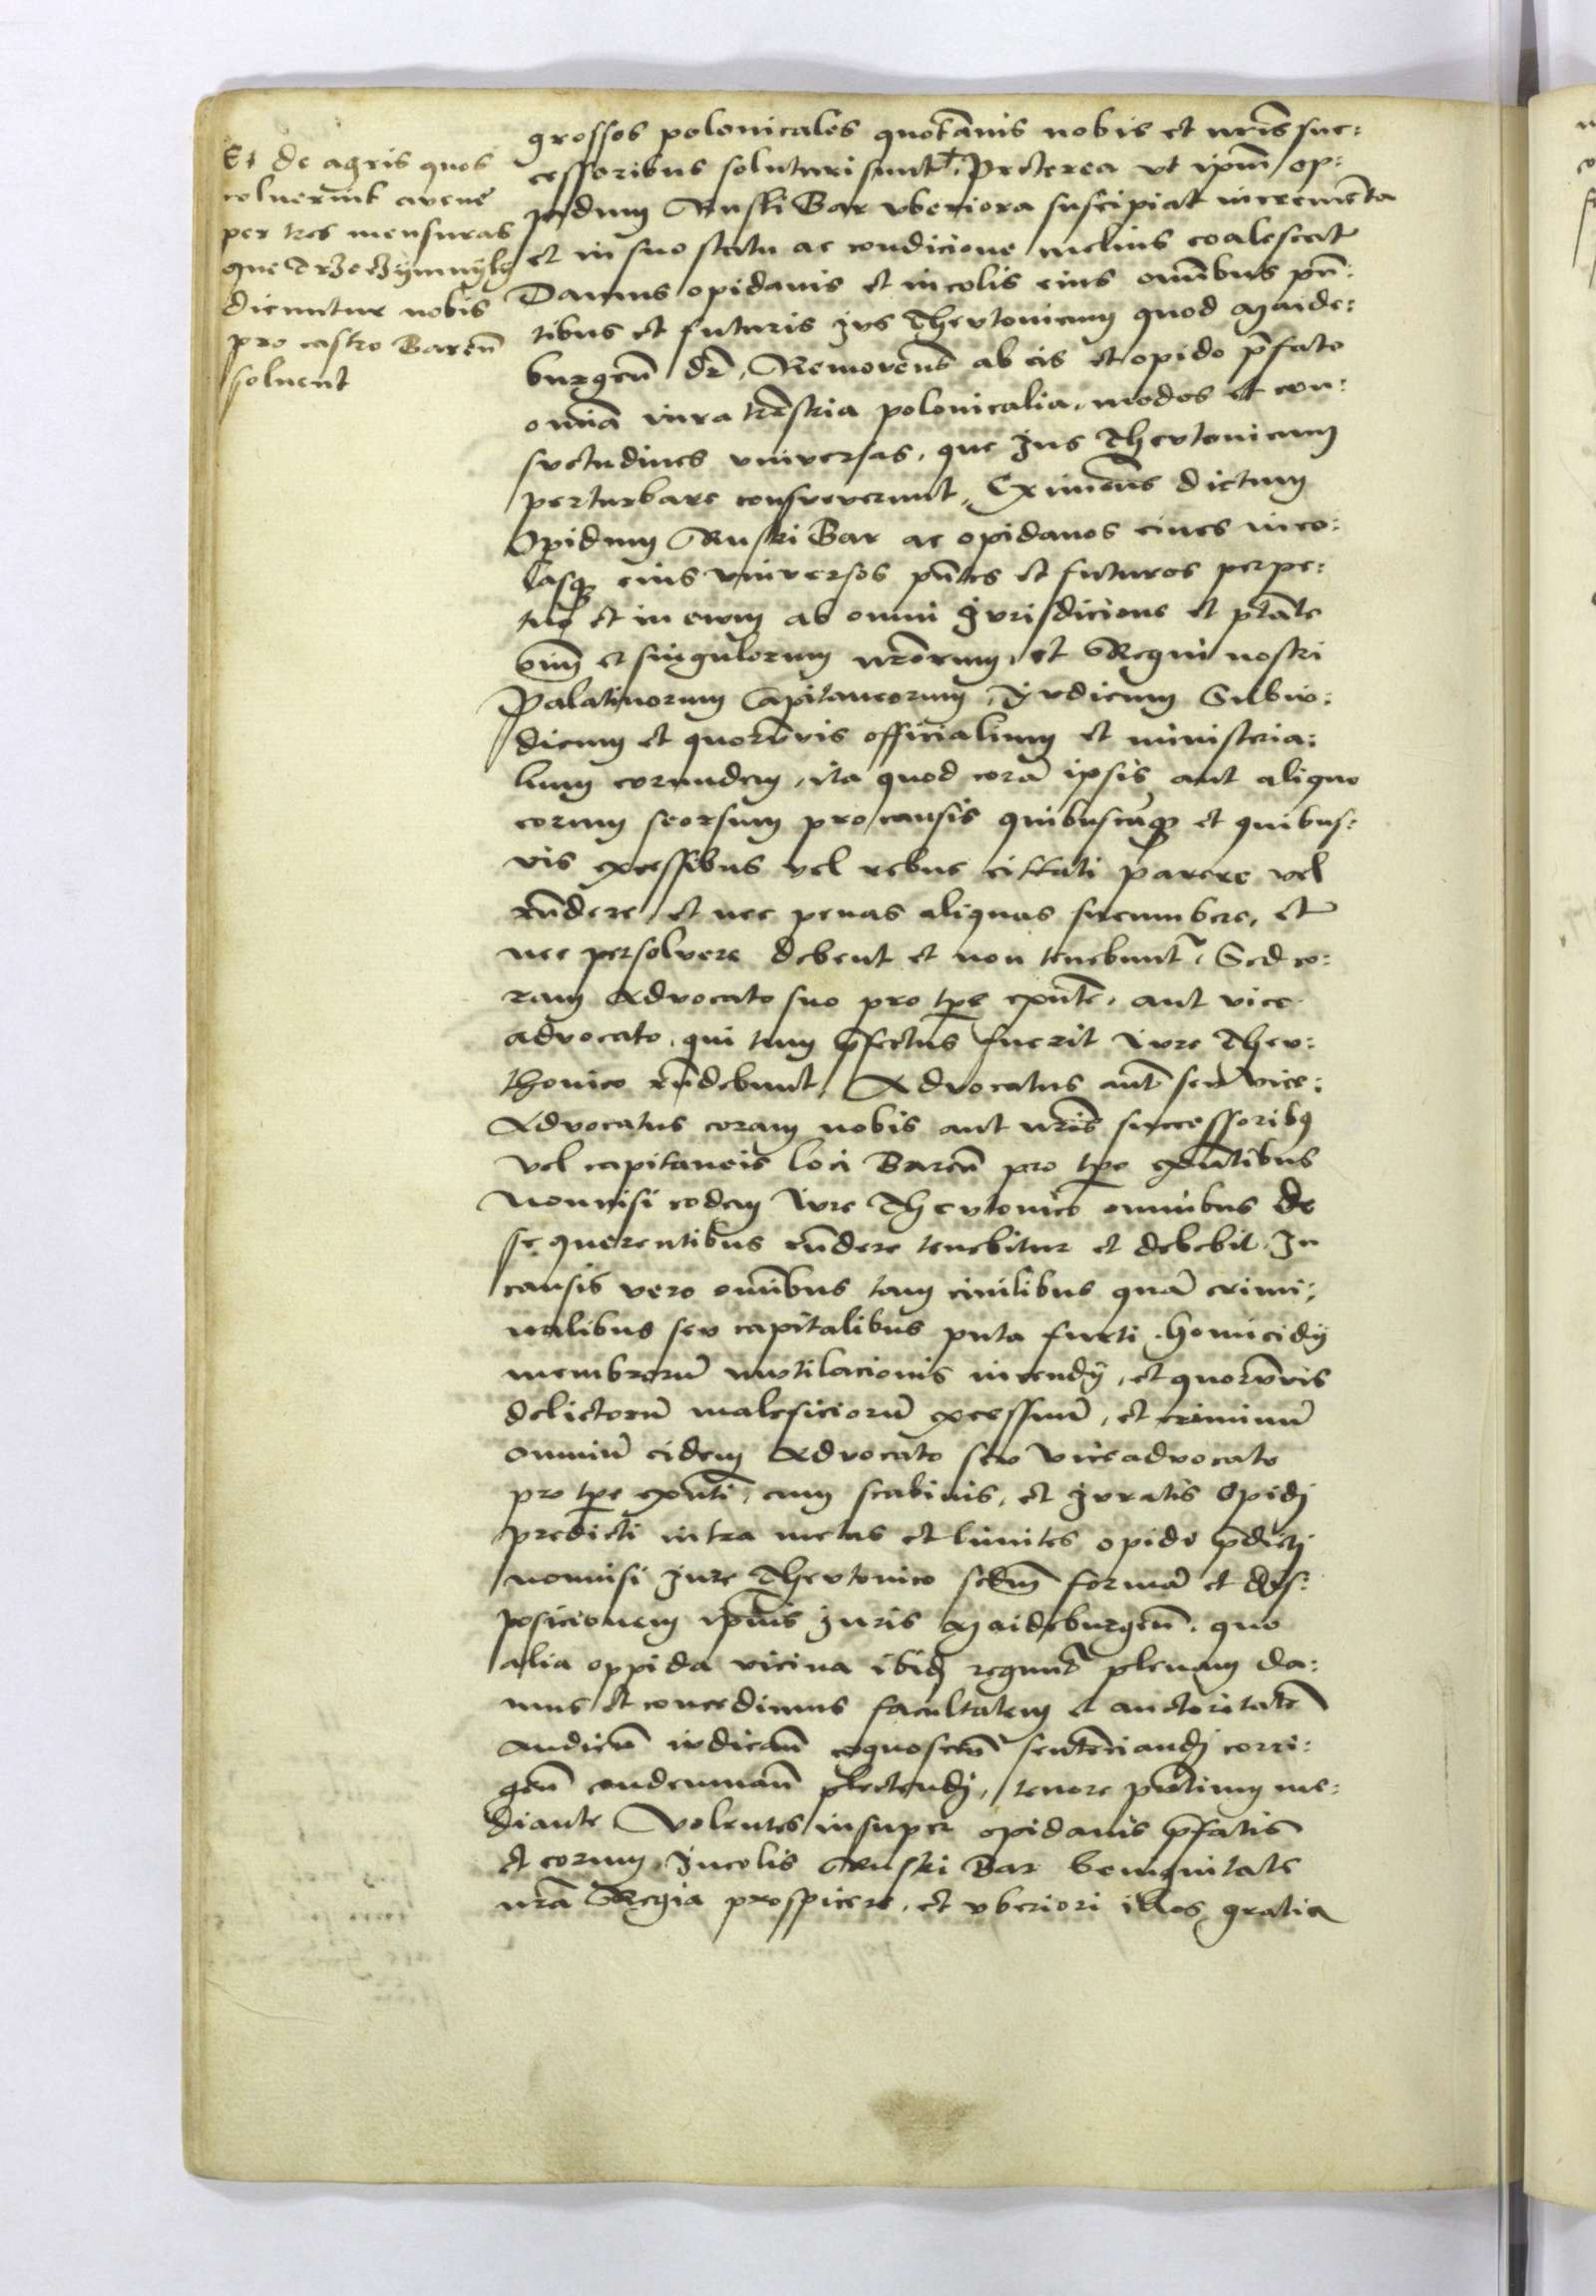 Et de agris quos
coluerint avene
per tres mensuras
que
dicuntur nobis
pro castro Bareñ
solvent
grossos polonicales quotānis nobis et nr̄is suc:
cessoribus soluturi sunt. Preterea vt ipm̄ op:
pidum Ruski Bar vberiora suscipiat incremēta
et in suo statu ac condicione melius coalescat
Damus opidanis et incolis eius om̄ibus pñ:
tibus et futuris Jus Thevtonicum quod Maide:
burgeñ dr̄, Removeñs ab eis et opido p̄fato
omīa iura trr̄estria polonicalia, modos et con:
svetudines vniversas, que Jus Thevtonicum
perturbare consveverunt, Eximeñs dictum
Opidum Ruski Bar ac opidanos cives inco:
lasq̨ eius vniversos pñtes et futuros perpe:
tuo et in evum ab omni Jurisdicione et ptāte
oīm et singulorum nr̄orum, et Regni nostri
Palatinorum Capitaneorum, Judicum Subiu:
dicum et quorūvis officialium et ministeria:
lium eorundem, ita quod corā ipsis aut aliquo
eorum seorsum pro causis quibuscūq̨ et quibus:
vis excessibus vel rebus cittati parere vel
rñdere, et nec penas aliquas sucumbere, et
nec persolvere debent et non tenebunt̃. Sed co:
ram Advocato suo pro tp̄e exñte, aut vice
advocato, qui tum p̄fectus fuerit iure Thev:
thonico rñdebunt, Advocatus aut̄ seu vice:
Advocatus coram nobis aut nr̄is successoribꝰ
vel capitaneis loci Bareñ pro tp̄e exñtibus
nonnisi eodem iure Thevtonico omnibus de
se querentibus rñdere tenebitur et debebit. In
causis vero om̄ibus tam civilibus quā crimi:
nalibus seu capitalibus puta furti, homicidÿ
membrorū mutilacionis incendÿ, et quorūvis
delictorū maleficiorū excessuū, et criminū
omniū eidem Advocato seu viceadvocato
pro tp̄e exñti, cum scabinis, et Juratis Opidj
predicti intra metas et limites opidi p̄dictj
nonnisi Jure Thevtonico scdm̄ formā et dis:
posicionem ipīus Juris Maideburgeñ. quo
alia oppida vicina ibidē regunt̃ plenam da:
mus et concedimus facultatem et auctoritatē
Audieñ iudicañ cognosceñ sentenciandj corri:
geñ condemnañ plectendj, tenore pñtium me:
diante Volentes insuper opidanis p̄fatis
et eorum Incolis Ruski Bar benignitate
nr̄a Regia prospicere, et vberiori illos gratia